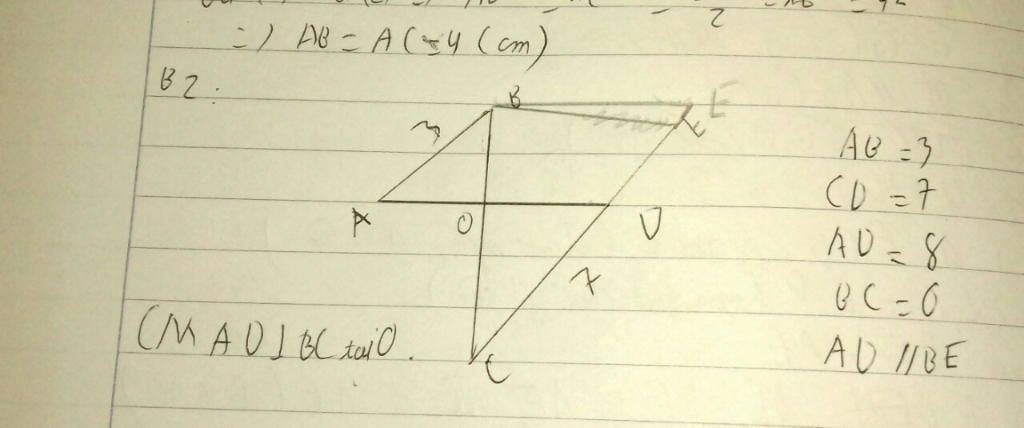 =) AB = AC = 4 (cm)
B2:
B
E
3
A
O
D
7
C
AB = 3
CD = 7
AD = 8
BC = 6
AD // BE
CM AD ⊥ BC tại O.